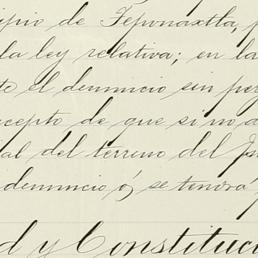 ipio de Teponaxtla, p
la ley relativa; en la
te el denuncio sin per
cepto de que si no a
al del terreno del Ju
denuncio ó, se tendrá
d y Constituci